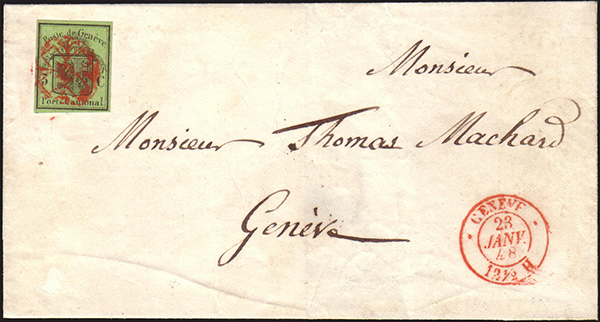 Poste de Genève
5 C
Port Cantonal
Monsieur
Monsieur Thomas Machard
Genève
GENÈVE
23
JANV.
48
12½ H